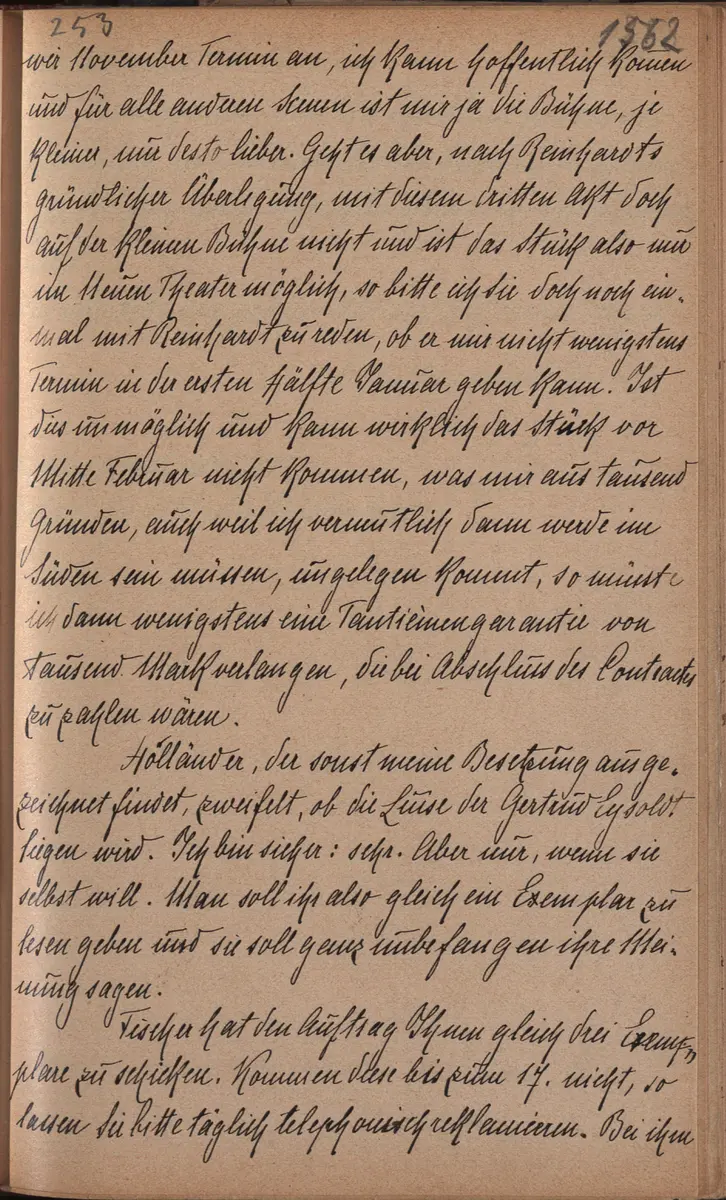 253 1562
wir November Termin an, ich kann hoffentlich komen
und für alle anderen Scenen ist mir ja die Bühne, je
kleiner, nur desto lieber. Geht es aber, nach Reinhardts
gründlicher Überlegung, mit diesem dritten Akt doch
auf der kleinen Bühne nicht und ist das Stück also nur
im Neuen Theater möglich, so bitte ich Sie doch noch ein-
mal mit Reinhardt zu reden, ob er mir nicht wenigstens
Termin in der ersten Hälfte Januar geben kann. Ist
dies unmöglich und kann wirklich das Stück vor
Mitte Februar nicht kommen, was mir aus tausend
Gründen, auch weil ich vermutlich dann werde im
Süden sein müssen, ungelegen kommt, so müsste
ich dann wenigstens eine Tantièmengarantie von
tausend Mark verlangen, die bei Abschluss des Contracts
zu zahlen wären.
Holländer, der sonst meine Besetzung ausge-
zeichnet findet, zweifelt, ob die Luise der Gertrud Eysoldt
liegen wird. Ich bin sicher: sehr. Aber nur, wenn sie
selbst will. Man soll ihr also gleich ein Exemplar zu
lesen geben und sie soll ganz unbefangen ihre Mei-
nung sagen.
Fischer hat den Auftrag Ihnen gleich drei Exem-
plare zu schicken. Kommen diese bis zum 17. nicht, so
lassen Sie bitte täglich telephonisch reklamieren. Bei ihm